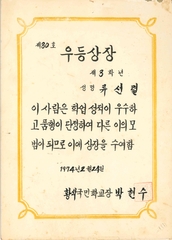 제30호
우등상장
제3학년
성명 류선렬
이 사람은 학업 성적이 우수하
고 품행이 단정하여 다른 이의 모
범이 되므로 이에 상장을 수여함
1974년 2월 24일
황석국민학교장 박헌수